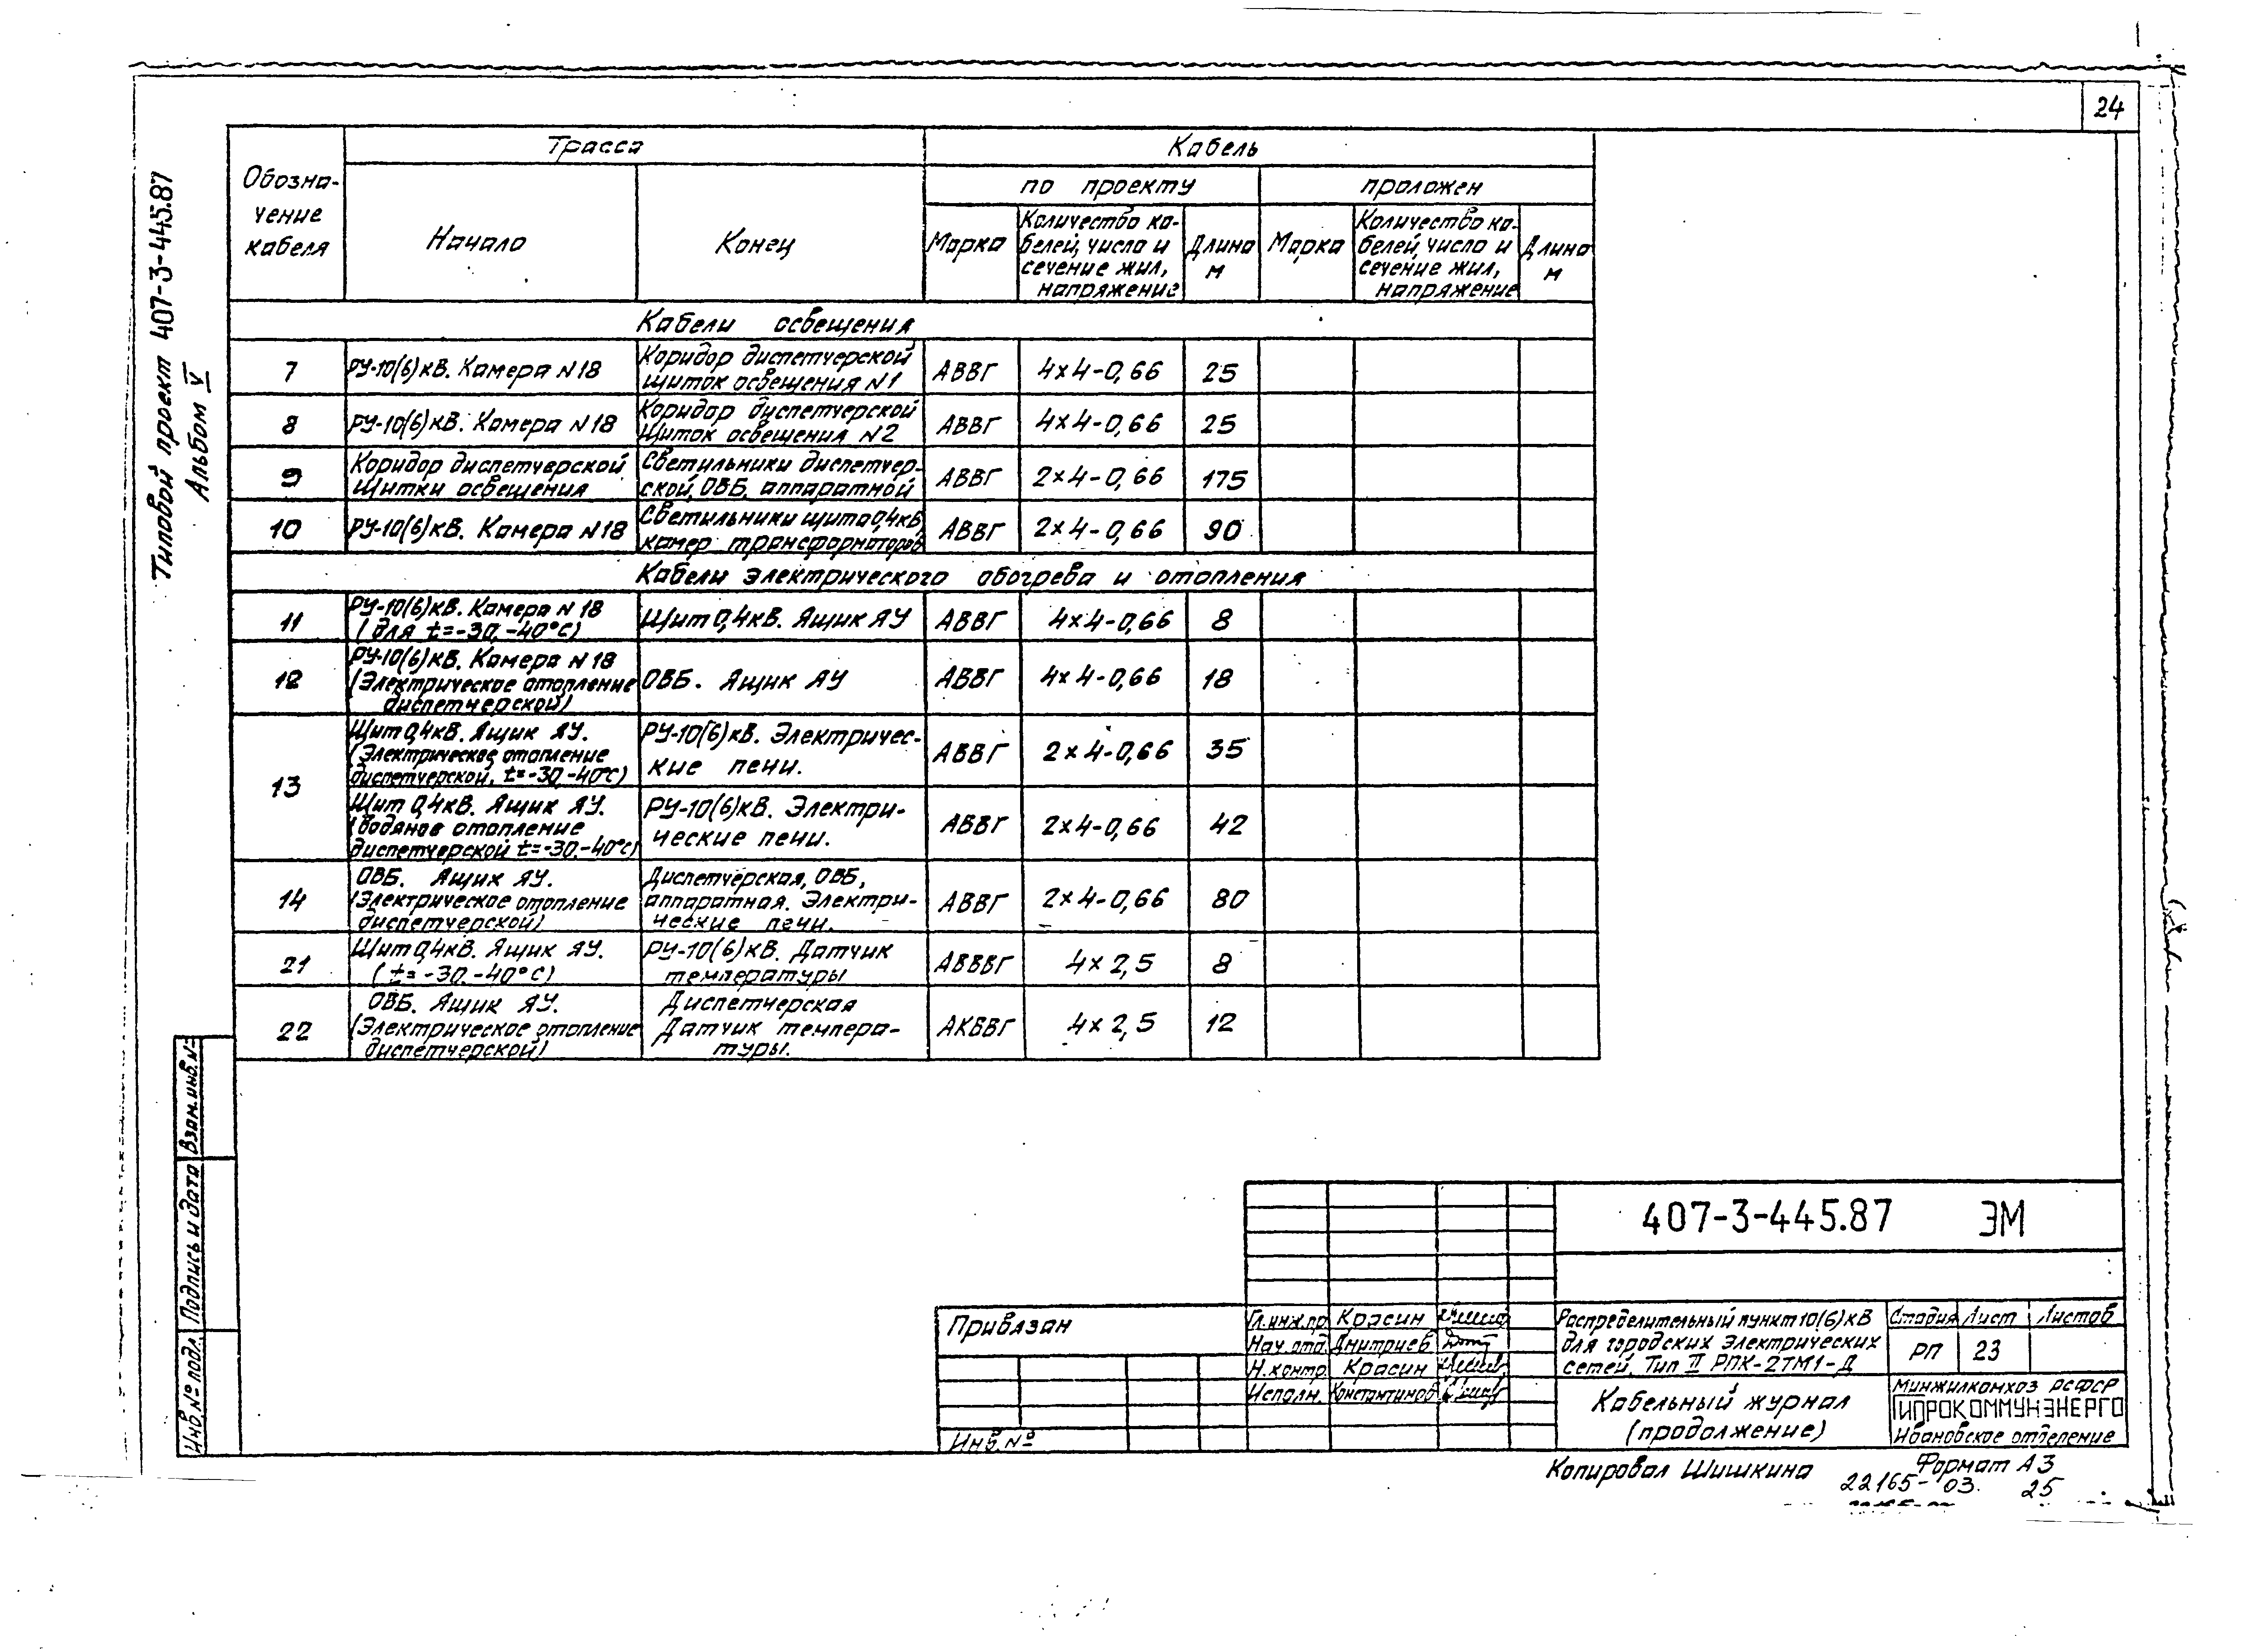 24
Типовой проект 407-3-445.87
Альбом V
Обозна-
чение
кабеля
Трасса
Кабель
по проекту
проложен
Начало
Конец
Марка
Количество ка-
белей, число и
сечение жил,
напряжение
Длина
м
Марка
Количество ка-
белей, число и
сечение жил,
напряжение
Длина
м
Кабели освещения
7
РУ-10(6)кВ. Камера N18
Коридор диспетчерской
щиток освещения N1
АВВГ
4×4-0,66
25
8
РУ-10(6)кВ. Камера N18
Коридор диспетчерской
Щиток освещения N2
АВВГ
4×4-0,66
25
9
Коридор диспетчерской
Щитки освещения
Светильники диспетчер-
ской, ОВБ, аппаратной
АВВГ
2×4-0,66
175
10
РУ-10(6)кВ. Камера N18
Светильники щита 0,4кВ,
камер трансформаторов
АВВГ
2×4-0,66
90
Кабели электрического обогрева и отопления
11
РУ-10(6)кВ. Камера N18
(для t=-30,-40°С)
Щит 0,4кВ. Ящик ЯУ
АВВГ
4×4-0,66
8
12
РУ-10(6)кВ. Камера N18
(Электрическое отопление
диспетчерской)
ОВБ. Ящик ЯУ
АВВГ
4×4-0,66
18
13
Щит 0,4кВ. Ящик ЯУ.
(Электрическое отопление
диспетчерской, t=-30,-40°С)
РУ-10(6)кВ. Электричес-
кие печи.
АВВГ
2×4-0,66
35
Щит 0,4кВ. Ящик ЯУ.
(Водяное отопление
диспетчерской t=-30,-40°С)
РУ-10(6)кВ. Электри-
ческие печи.
АВВГ
2×4-0,66
42
14
ОВБ. Ящик ЯУ.
(Электрическое отопление
диспетчерской)
Диспетчерская, ОВБ,
аппаратная. Электри-
ческие печи.
АВВГ
2×4-0,66
80
21
Щит 0,4кВ. Ящик ЯУ.
(t=-30.-40°С)
РУ-10(6)кВ. Датчик
температуры
АВВВГ
4×2,5
8
22
ОВБ. Ящик ЯУ.
(Электрическое отопление
диспетчерской)
Диспетчерская
Датчик темпера-
туры.
АКВВГ
4×2,5
12
Взам.инв.№
Подпись и дата
Инв.№ подл.
407-3-445.87 ЭМ
Привязан
Инв.№
Гл.инж.пр. Красин
Нач.отд. Дмитриев
Н.контр. Красин
Исполн. Константинов
Распределительный пункт 10(6)кВ
для городских электрических
сетей. Тип II РПК-2ТМ1-Д
Стадия Лист Листов
РП 23
Кабельный журнал
(продолжение)
Минжилкомхоз РСФСР
ГИПРОКОММУНЭНЕРГО
Ивановское отделение
Копировал Шишкина
Формат А3
22165-03. 25